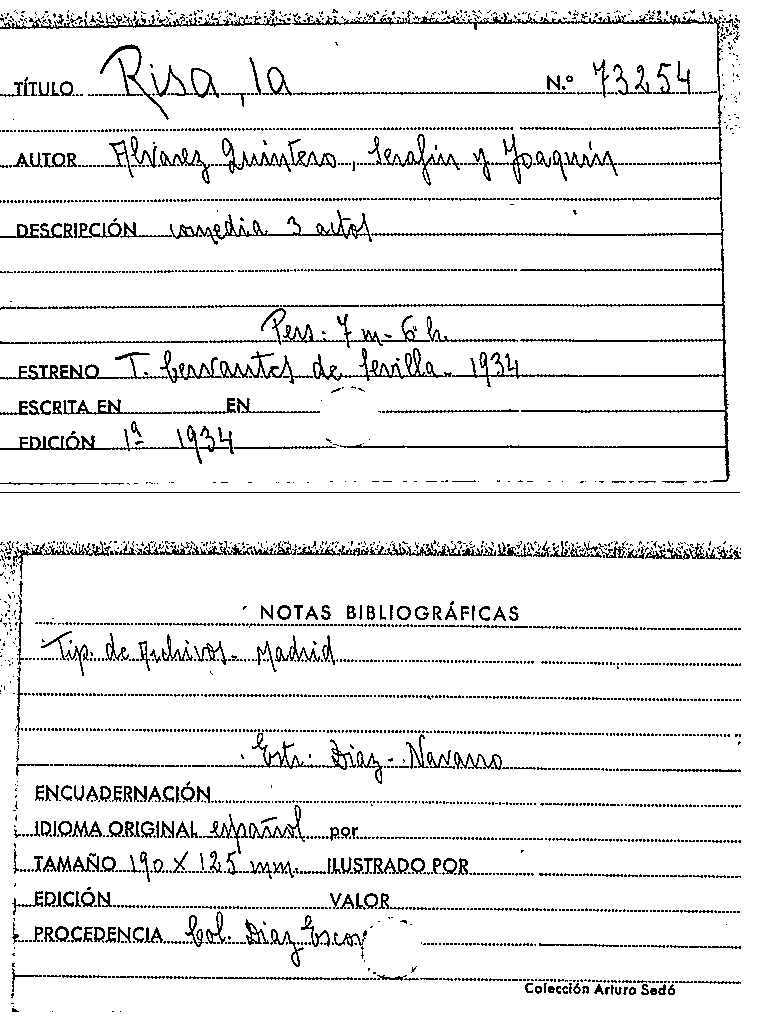 TÍTULO Risa, la N.º 73254
AUTOR Alvarez Quintero, Serafín y Joaquín
DESCRIPCIÓN comedia 3 actos
Pers: 7 m - 6 h.
ESTRENO T. Cervantes de Sevilla - 1934
ESCRITA EN EN
EDICIÓN 1ª 1934
NOTAS BIBLIOGRÁFICAS
Tip. de Archivos - Madrid
Estr: Diaz - Navarro
ENCUADERNACIÓN
IDIOMA ORIGINAL español por
TAMAÑO 190 X 125 mm. ILUSTRADO POR
EDICIÓN VALOR
PROCEDENCIA Col. Diaz Escov
Colección Arturo Sedó